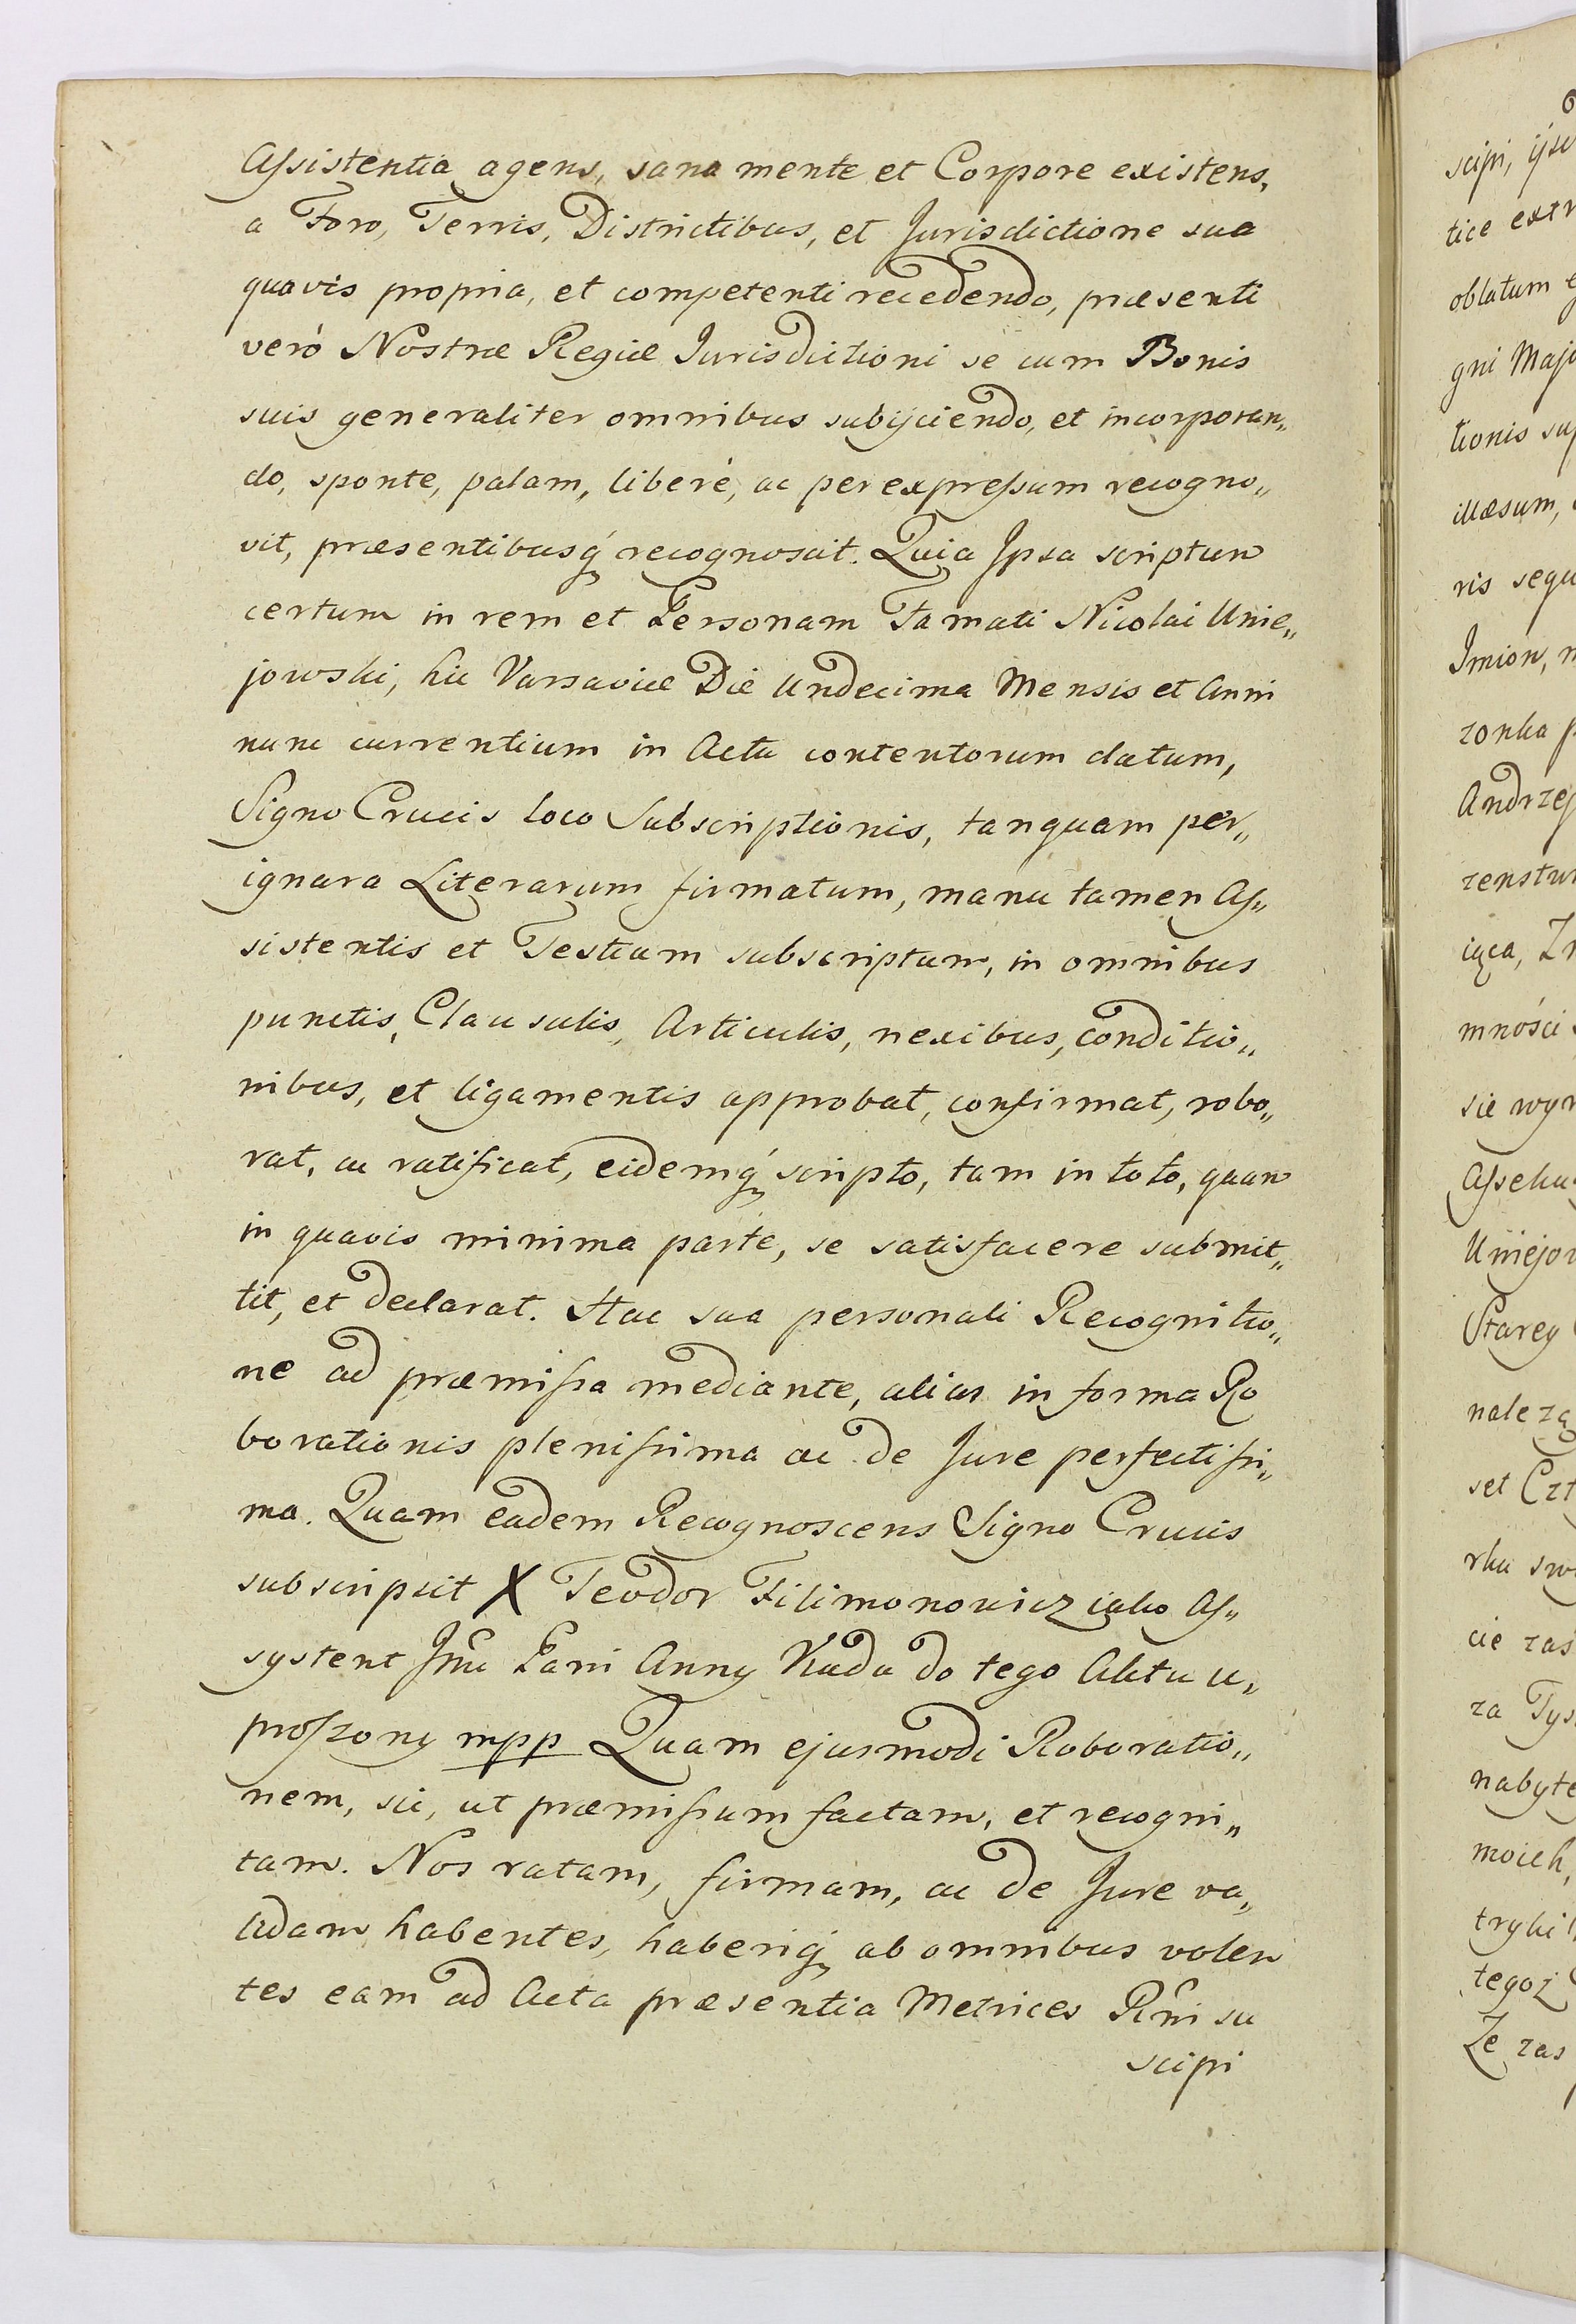 Assistentia agens, sana mente et Corpore existens,
a Foro, Terris, Districtibus, et Jurisdictione sua
quavis propria, et competenti recedendo, præsenti
verò Nostræ Regiæ Jurisdictioni se cum Bonis
suis generaliter omnibus subijciendo, et incorporan„
do, sponte, palam, liberè, ac per expressum recogno„
vit, præsentibusq́ recognoscit. Quia Ipsa scriptum
certum in rem et Personam Famati Nicolai Unie„
jowski, hic Varsaviæ Die Undecima Mensis et Anni
nunc currentium in Actu contentorum datum,
Signo Crucis loco Subscriptionis, tanquam per„
ignara Literarum firmatum, manu tamen As„
sistentis et Testium subscriptum, in omnibus
punctis, Clausulis, Articulis, nexibus, conditio„
nibus, et ligamentis approbat, confirmat, robo„
rat, ac ratificat, eidemq́ scripto, tam in toto, quam
in quavis minima parte, se satisfacere submit„
tit, et declarat. Hac sua personali Recognitio„
ne ad præmissa mediante, alias in forma Ro
borationis plenissima ac de Jure perfectissi„
ma. Quam eadem Recognoscens Signo Crucis
subscripsit X Teodor Filimonowicz iako As„
systent Pani Anny do tego Aktu u„
proszony mpp Quam ejusmodi Roboratio„
nem, sic, ut præmissum factam, et recogni„
tam. Nos ratam, firmam, ac de Jure va„
lidam habentes, haberiq́ ab omnibus volen
tes eam ad Acta præsentia Metrices Rñi su
scipi
scipi,
tice extr
oblatum
gni Maj
tionis su
illæsum,
ris sequ
Imion,
zonka p
Andrzej
mności
sie wyr
Uniejo
Starey
należą
set Czt
cie zaś
za Tys
nabyte
moich,
tegoż
Że zas